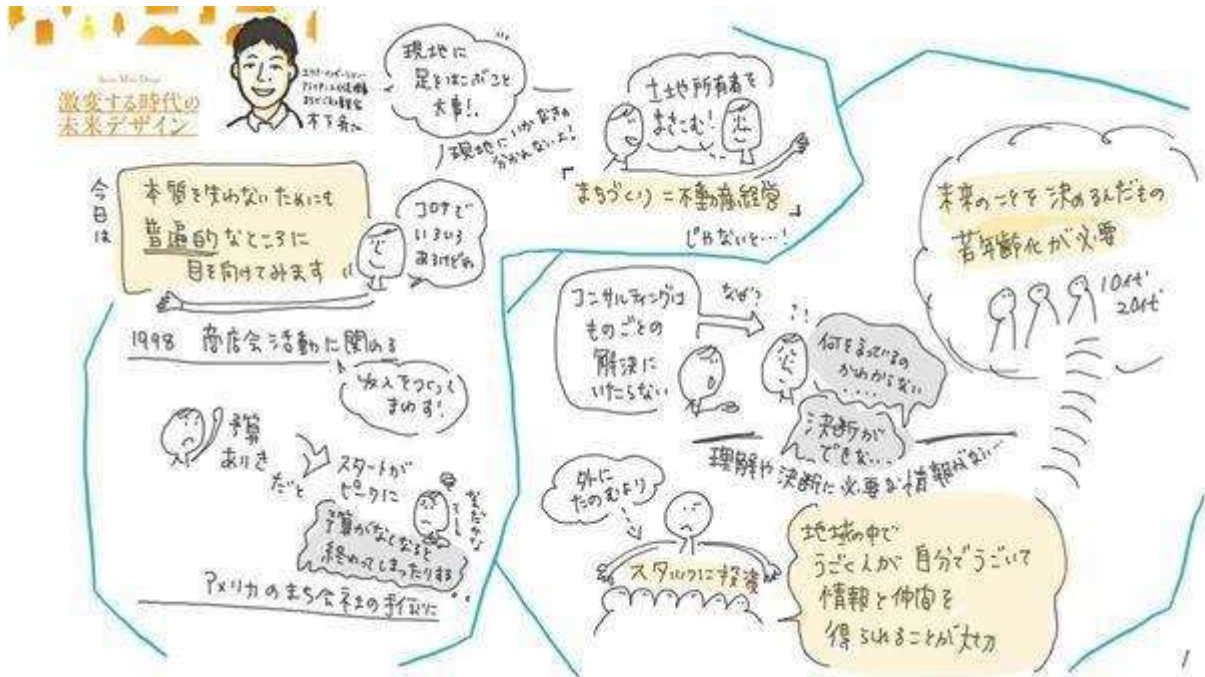 激変する時代の
未来デザイン
木下斉さん
現地に
足をはこぶこと
大事!
現地にいかなきゃ
分かんないよ!
土地や所有者を
まきこむ!
「まちづくり=不動産経営」
じゃないと…!
今日は
本質を失わないためにも
普遍的なところに
目を向けてみます
コロナで
いろいろ
あるけどね
1998 商店会活動に関わる
収入をつくって
まわす!
予算
ありき
だと
スタートが
ピークに
予算がなくなると
終わってしまったりする
アメリカのまち会社の手伝いに
コンサルティングは
ものごとの
解決に
いたらない
なぜ?
何を言っているの
かわからない
....
決断が
できな...
理解や決断に必要な情報がない…
外に
たのむより
スタッフに投資
地域の中で
うごく人が自分でうごいて
情報と仲間を
得られることが大切
未来のことを決めるんだもの
若年齢化が必要
10代
20代
1